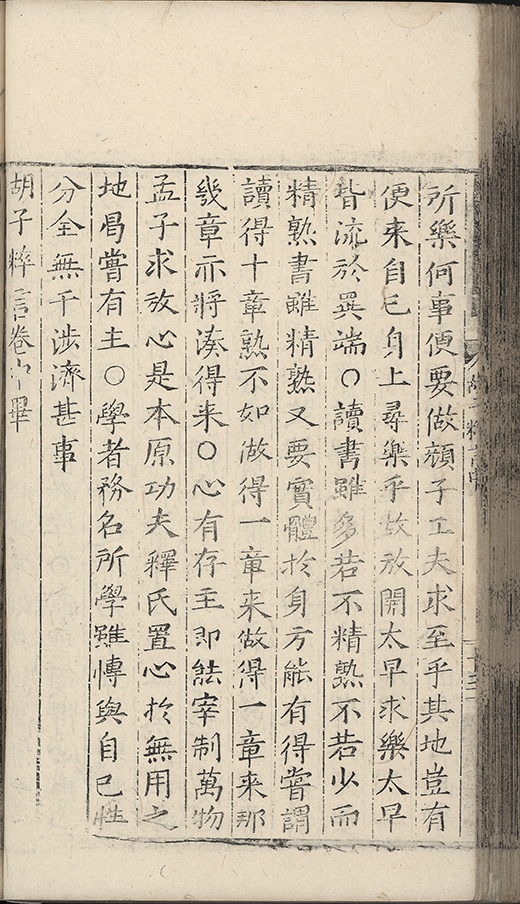 所樂何事便要做顔子工夫求至乎其地豈有
便來自己身上尋樂乎故放開太早求樂太早
皆流於異端○讀書雖多若不精熟不若少而
精熟書雖精熟又要實體於身方能有得嘗謂
讀得十章熟不如做得一章来做得一章来那
幾章亦将湊得来○心有存主即能宰制萬物
孟子求放心是本原功夫釋氏置心於無用之
地曷嘗有主○學者務名所學雖博與自己性
分全無干涉濟甚事
胡子粹言卷中畢